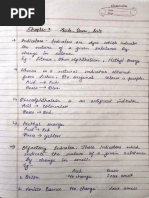 Chapter-4 Acids, Bases, Salts
1. Indicators - Indicators are dyes which indicate
the nature of a given solution by
change in colour.
Eg - Litmus, Phenolphthalein, Methyl orange
2. Litmus is a natural indicator obtained
from lichens. Its original colour is purple.
Acid → red
Base → blue
3. Phenolphthalein is an artificial indicator
Acid → colourless
Base → pink
4. Methyl orange
Acid → red
Base → yellow
5. Olfactory Indicator: Those indicators which
the nature of a given solution
by change in smell.
Eg - Acid Base
1. Onion No change loses smell
2. Vanilla Essence No change loses smell